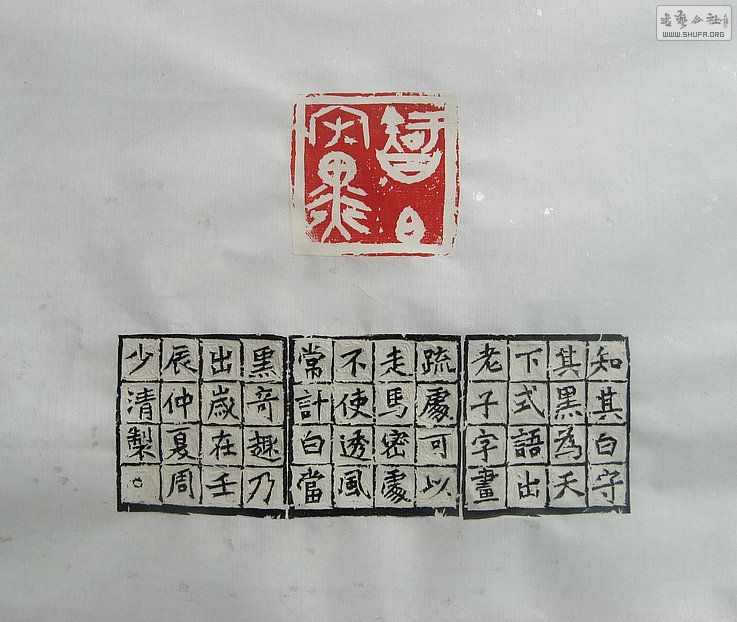 書藝公社
WWW.SHUFA.ORG
知白
守黑
知其白守
其黑為天
下式語出
老子字畫
疏處可以
走馬密處
不使透風
常計白當
黑奇趣乃
出歲在壬
辰仲夏周
少清製